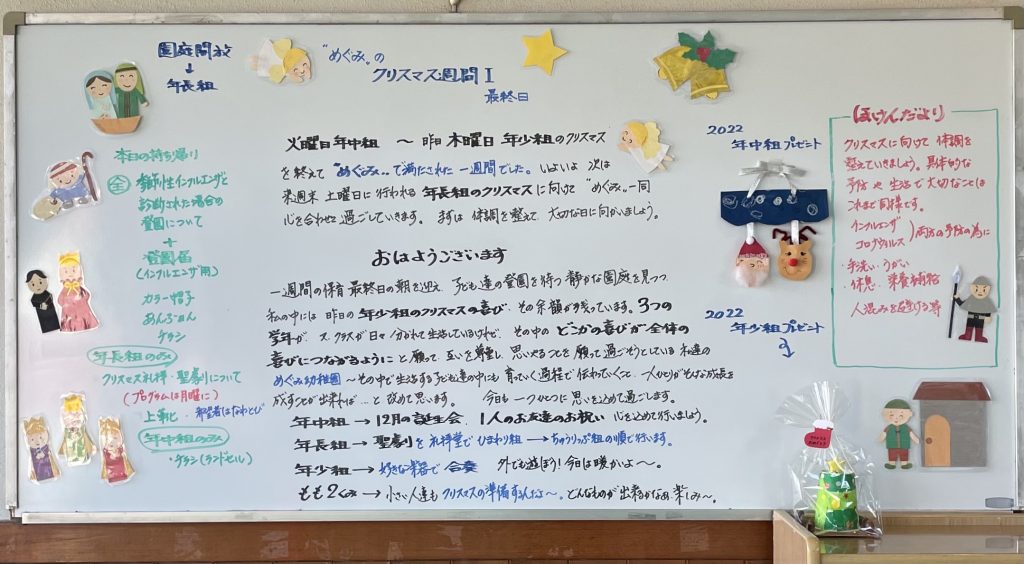 園庭開放
↓
年長組
"めぐみ"の
クリスマス週間 I
最終日
本日の持ち帰り
全
季節性インフルエンザと
診断された場合の
登園について
+
登園届
(インフルエンザ用)
カラー帽子
あんぷぉん
チラシ
年長組のみ
クリスマス礼拝・聖劇について
(プログラムは月曜に)
上靴 希望者はなわとび
年中組のみ
・チラシ(ランドセル)
火曜日 年中組 〜 昨日 木曜日 年少組のクリスマス
を終えて "めぐみ" で満たされた一週間でした。いよいよ 次は
来週末 土曜日に行われる 年長組のクリスマスに向けて "めぐみ" 一同
心を合わせて過ごしていきます。 まずは 体調を整えて、大切な日に向かいましょう。
おはようございます
一週間の保育 最終日の朝を迎え 子ども達の登園を待つ 静かな園庭を見つつ
私の中には 昨日の 年少組のクリスマスの喜び、その余韻が残っています。3つの
学年が、クラスが日々 分かれて生活しているけれど、その中の どこかの喜びが全体の
喜びにつながるように と願って 互いを尊重し 思いやることを願って過ごそうとしている 私達の
めぐみ幼稚園 〜その中で生活する子ども達の中にも 育っていく過程で 伝わっていくこと、一人ひとりがそんな成長を
成すことが出来れば…と 改めて思います。 今日も 一つひとつに 思いを込めて過ごします。
年中組 → 12月の誕生会、1人のお友達のお祝い 心を込めて行いましょう。
年長組 → 聖劇を 礼拝堂で ひまわり組 → ちゅうりっぷ組の順で行います。
年少組 → 好きな楽器で 合奏 外でも遊ぼう!今日は暖かいよ〜。
もも2くみ → 小さい人達も クリスマスの準備するんだよ〜。どんなものが出来るかなぁ 楽しみ〜。
2022
年中組プレゼント
2022
年少組プレゼント
ほけんだより
クリスマスに向けて 体調を
整えていきましょう。具体的な
予防や生活で大切なことは
これまで同様です。
インフルエンザ
コロナウィルス
)両方の予防の為に
・手洗い・うがい
・休息・栄養補給
人混みを避ける等